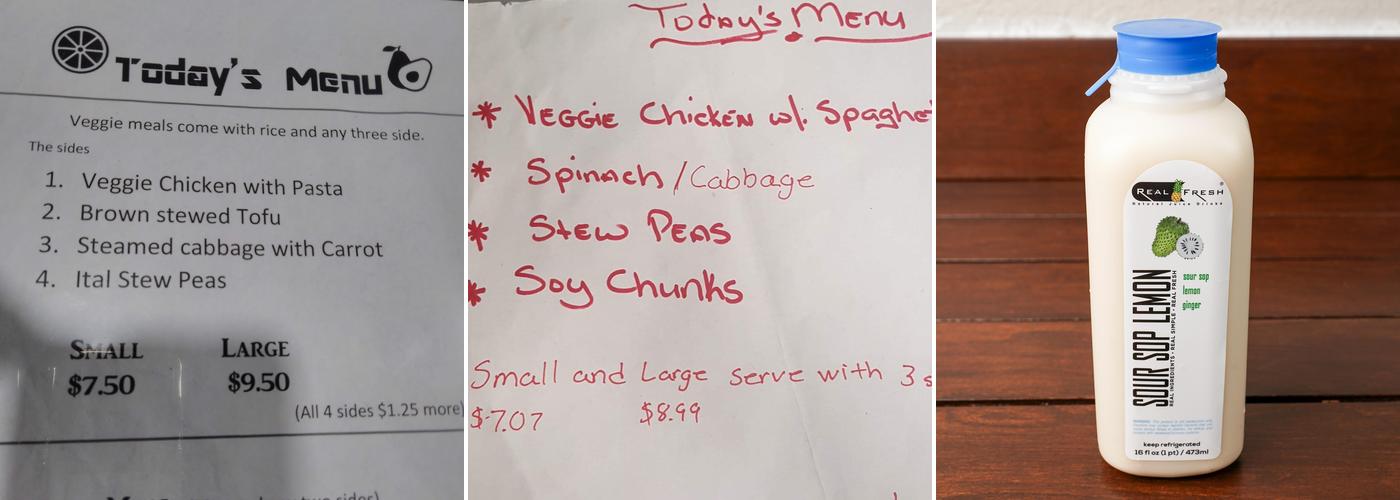 Today's Menu
Veggie meals come with rice and any three side.
The sides
1. Veggie Chicken with Pasta
2. Brown stewed Tofu
3. Steamed cabbage with Carrot
4. Ital Stew Peas
SMALL LARGE
$7.50 $9.50
(All 4 sides $1.25 more)
Today's Menu
* VEGGIE CHICKEN w/. Spaghet
* Spinach/Cabbage
* STEW PEAS
* Soy Chunks
Small and Large serve with 3 s
$7.07 $8.99
REAL FRESH
Natural Juice Drinks
SOUR SOP LEMON
REAL INGREDIENTS • REAL SIMPLE • REAL FRESH
sour sop
lemon
ginger
keep refrigerated
16 fl oz (1 pt) / 473ml